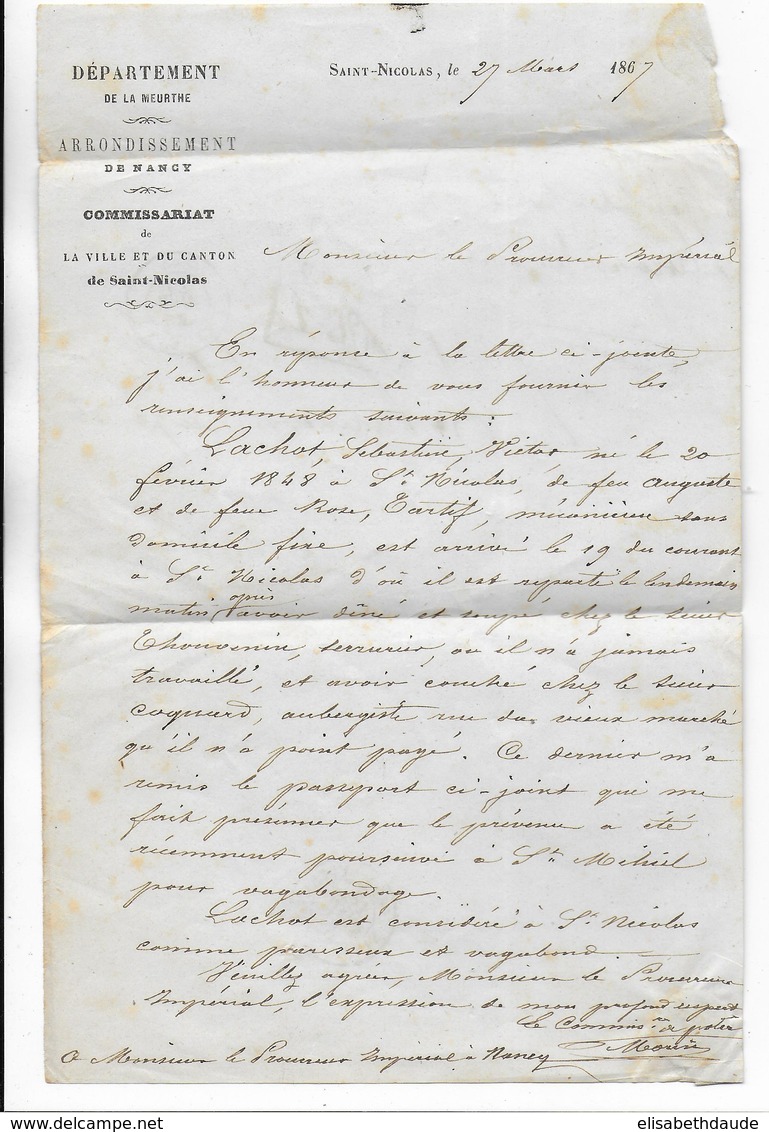 DÉPARTEMENT
DE LA MEURTHE
ARRONDISSEMENT
DE NANCY
COMMISSARIAT
de
LA VILLE ET DU CANTON
de Saint-Nicolas
SAINT-NICOLAS, le 27 Mars 1867
Monsieur le Procureur Impérial
En réponse à la lettre ci-jointe,
j'ai l'honneur de vous fournir les
renseignements suivants:
Lachot, Sébastien, Victor né le 20
février 1848 à St Nicolas, de feu Auguste
et de feue Rose, Tartif, mécanicien sans
domicile fixe, est arrivé le 19 du courant
à St Nicolas d'où il est reparti le lendemain
matin après avoir dîné et soupé chez le sieur
Thouvenin, serrurier, ou il n'a jamais
travaillé, et avoir couché chez le sieur
Coquard, aubergiste rue du vieux marché
qu'il n'a point payé. Ce dernier m'a
remis le passeport ci-joint qui me
fait présumer que le prévenu a été
récemment poursuivi à St Mihiel
pour vagabondage.
Lachot est considéré à St Nicolas
comme paresseux et vagabond.
Veuillez agréer, Monsieur le Procureur
Impérial, l'expression de mon profond respect
Le Commisre de police
Morin
A Monsieur le Procureur Impérial à Nancy
elisabethdaude